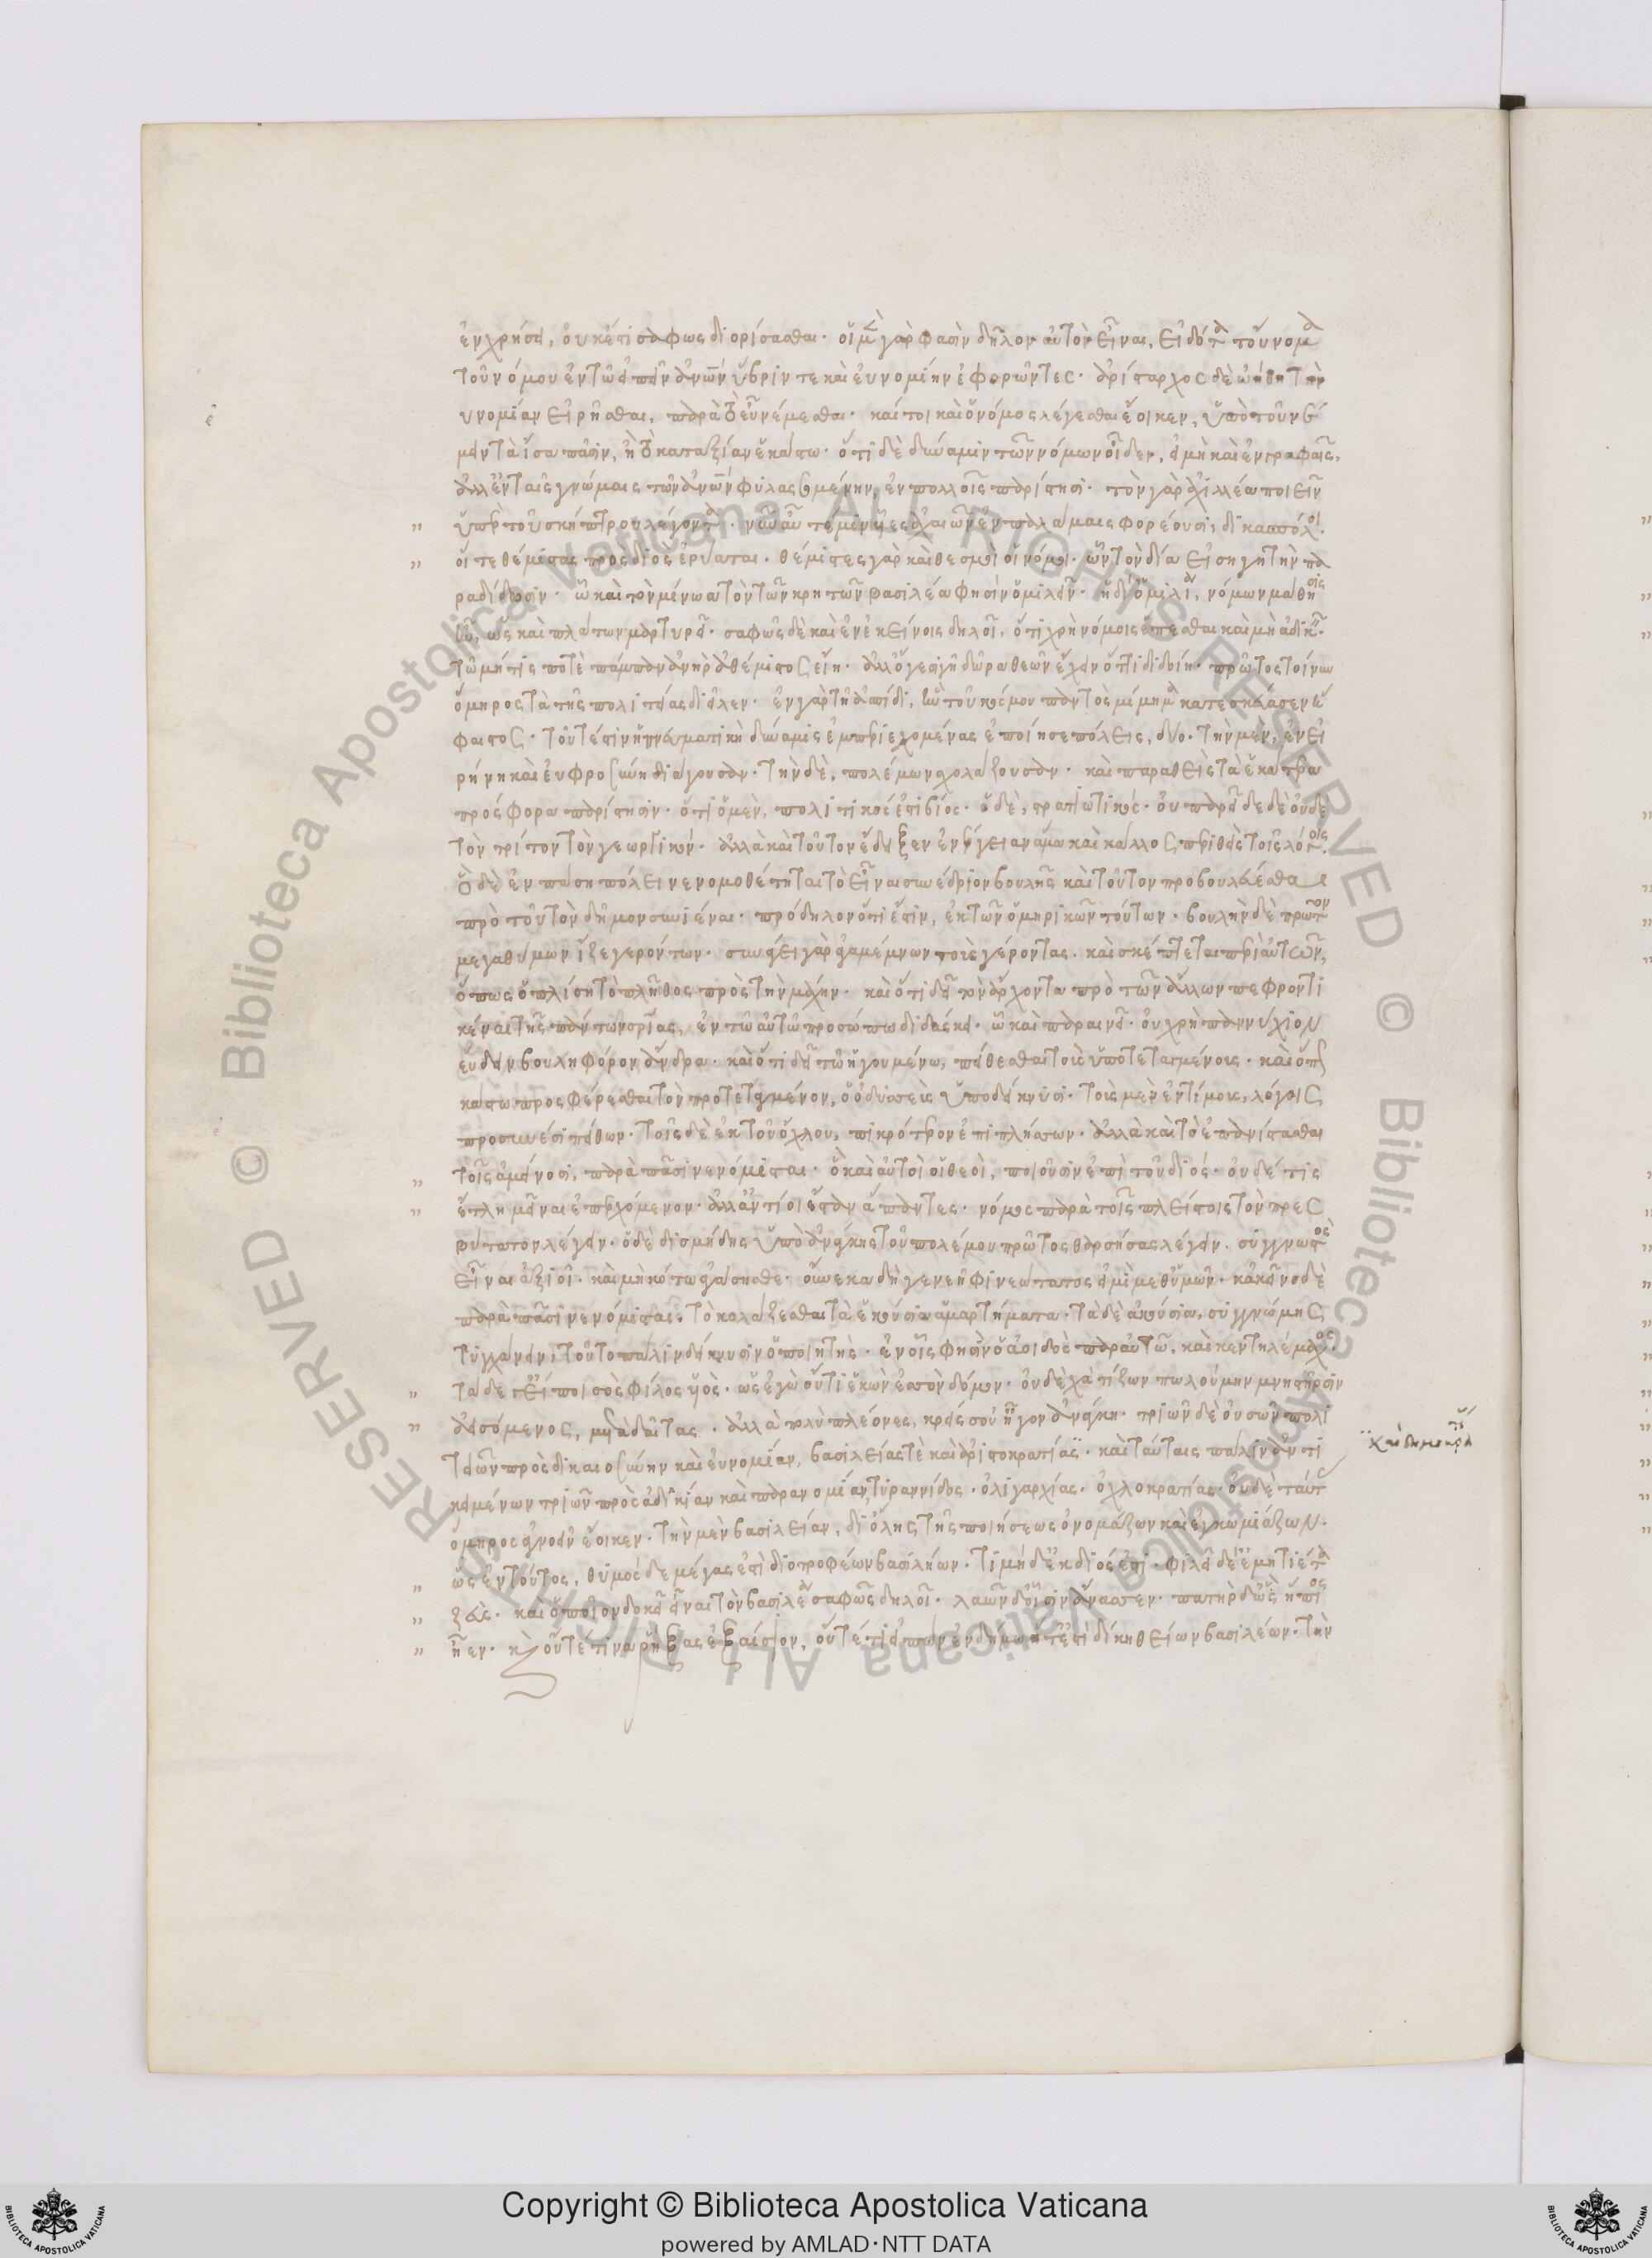 ἐν χρήσει, οὐκέτι σαφῶς διορίσασθαι· οἱ μὲν γὰρ φασὶν δῆλον αὐτὸν εἶναι, εἰδότα τοὔνομα
τοῦ νόμου ἐν τῷ εἰπεῖν ἀνων ὕβριν τε καὶ εὐνομίην ἐφορῶντες· ἀρίσταρχος δὲ ᾠήθη τὴν
υνομίαν εἰρῆσθαι, παρὰ τὸ εὖ νέμεσθαι· καίτοι καὶ ὁ νόμος λέγεσθαι ἔοικεν, ὑπὸ τοῦ νέ
μειν τὰ ἴσα πᾶσιν, ἢ τὸ κατ' ἀξίαν ἑκάστω· ὅτι δὲ δύναμιν τῶν νόμων οἶδεν, εἰ μὴ καὶ ἐν γραφαῖς,
ἀλλ' ἐν ταῖς γνώμαις τῶν ἀνων φυλασσομένην, ἐν πολλοῖς παρίστησι· τὸν γὰρ ἀχιλλέα ποιεῖν
ὑπὲρ τοῦ σκήπτρου λέγοντα· νῦν αὖ τέ μιν υἷες ἀχαιῶν ἐν παλάμαις φορέουσι, δικασπόλοι·
οἵ τε θέμιστας πρὸς διὸς εἰρύαται· θέμιστες γὰρ καὶ θεσμοὶ οἱ νόμοι· ὧν τὸν δία εἰσηγητὴν πα
ραδίδωσιν· ᾧ καὶ τὸν μίνωα τὸν τῶν κρητῶν βασιλέα φησὶν ὁμιλεῖν· ἡ δ' ὁμιλία, νόμων μάθησις
ἦν, ὡς καὶ πλάτων μαρτυρεῖ· σαφῶς δὲ καὶ ἐν ἐκείνοις δηλοῖ, ὅτι χρὴ νόμοις ἕπεσθαι καὶ μὴ ἀδικεῖν·
τῷ μήτις ποτὲ πάμπαν ἀνὴρ ἀθέμιστος εἴη· ἀλλ' ὅγε σιγῇ δῶρα θεῶν ἔχειν ὅττι διδοίη· πρῶτος τοίνυν
ὅμηρος τὰ τῆς πολιτείας διεῖλεν· ἐν γὰρ τῇ ἀσπίδι, ἣν τοῦ κόσμου παντὸς μίμημα κατεσκεύασεν ἥ
φαιστος· τουτέστιν ἡ πνευματικὴ δύναμις ἐμπεριεχομένας ἐποίησε πόλεις, δύο· τὴν μὲν, ἐν εἰ
ρήνη καὶ εὐφροσύνη διάγουσαν· τὴν δὲ, πολέμω σχολάζουσαν· καὶ παραθεὶς τὰ ἑκατέρω
πρόσφορα παρίστησιν· ὅτι ὁ μὲν, πολιτικός ἐστι βίος· ὁ δὲ, στρατιωτικός· οὐ παρεῖδε δὲ οὐδὲ
τὸν τρίτον τὸν γεωργικόν· ἀλλὰ καὶ τοῦτον ἔδειξεν ἐνέργειαν ἅμα καὶ κάλλος περιθεὶς τοῖς λόγοις·
ὃ δὲ ἐν πάση πόλει νενομοθέτηται τὸ εἶναι συνέδριον βουλῆς καὶ τοῦτον προβουλεύεσθαι
πρὸ τοῦ τὸν δῆμον συνιέναι· πρόδηλον ὅτι ἔστιν, ἐκ τῶν ὁμηρικῶν τούτων· βουλὴν δὲ πρῶτον
μεγαθύμων ἷζε γερόντων· συνάγει γὰρ ἀγαμέμνων τοὺς γέροντας. καὶ σκέπτεται περὶ αὐτῶν,
ὅπως ὁπλίση τὸ πλῆθος πρὸς τὴν μάχην· καὶ ὅτι δεῖ τὸν ἄρχοντα πρὸ τῶν ἄλλων πεφροντι
κέναι τῆς πάντων σωτηρίας, ἐν τῷ αὐτῷ προσώπω διδάσκει· ᾧ καὶ παραινεῖ· οὐ χρὴ παννύχιον
εὕδειν βουληφόρον ἄνδρα· καὶ ὅτι δεῖ τῷ ἡγουμένω, πείθεσθαι τοὺς ὑποτεταγμένοις· καὶ ὅπως
κάστω προσφέρεσθαι τὸν προτεταγμένον, ὁ ὀδυσσεὺς ὑποδείκνυσι· τοὺς μὲν ἐντίμους, λόγοις
προσηνέσι πείθων· τοὺς δὲ ἐκ τοῦ ὄχλου, πικρότερον ἐπιπλήσσων· ἀλλὰ καὶ τὸ ἐπανίστασθαι
τοῖς ἀμείνοσι, παρὰ πᾶσι νενόμισται· ὃ καὶ αὐτοὶ οἱ θεοὶ, ποιοῦσιν ἐπὶ τοῦ διός· οὐδέ τις
ἔτλη μεῖναι ἐπερχόμενον· ἀλλ' ἀντίοι ἔσταν ἅπαντες· νόμος παρὰ τοῖς πλείστοις τὸν πρεσ
βύτατον λέγειν· ὁ δὲ διομήδης ὑπὸ ἀνάγκης τοῦ πολέμου πρῶτος θαρσήσας λέγειν. σύγγνωστος
εἶναι ἀξιοῖ· καὶ μὴ κότω ἀγάσησθε· οὕνεκα δὴ γενεῆφι νεώτατος εἰμὶ μεθ' ὑμῶν· κἀκεῖνο δὲ
παρὰ πᾶσι νενόμισται· τὸ κολάζεσθαι τὰ ἑκούσια ἁμαρτήματα· τὰ δὲ ἀκούσια, συγγνώμης
τυγχάνειν· τοῦτο πάλιν δείκνυσιν ὁ ποιητὴς· ἐν οἷς φησὶν ὁ ἀοιδὸς παρ' αὐτῷ. καὶ κεν τηλέμαχος·
τάδε γ' εἴποι σὸς φίλος υἱὸς· ὡς ἐγὼ οὔτι ἑκὼν ἐς σὸν δόμον· οὐδὲ χατίζων πωλούμην μνηστῆρσιν
ἀεισόμενος, μετὰ δαῖτας · ἀλλὰ πολὺ πλέονες, κρείσσου ἦγον ἀνάγκη· τριῶν δὲ οὐσῶν πολι
τειῶν πρὸς δικαιοσύνην καὶ εὐνομίαν, βασιλείας τὲ καὶ ἀριστοκρατίας¨· καὶ ταύταις πάλιν ἀντι
¨καὶ δημοκρατί
κειμένων τριῶν πρὸς ἀδικίαν καὶ παρανομίαν, τυραννίδος· ὀλιγαρχίας· ὀχλοκρατίας· οὐδὲ ταύτας
ὅμηρος ἀγνοεῖν ἔοικεν· τὴν μὲν βασιλείαν, δι' ὅλης τῆς ποιήσεως ὀνομάζων καὶ ἐγκωμιάζων·
ὡς ἐν τούτοις, θυμὸς δὲ μέγας ἐστὶ διοτροφέων βασιλήων· τιμὴ δ' ἐκ διός ἐστι· φιλεῖ δέ ἑ μητιέτα
ζεὺς· καὶ ὁποῖον δοκεῖ εἶναι τὸν βασιλέα σαφῶς δηλοῖ· λαῶν δ' οἷσιν ἄνασσεν· πατὴρ δ' ὣς ἤπιος
ἦεν· κ οὔτέ τινα ῥήξας ἐξαίσιον, οὔτέ τι εἰπὼν ἐν δήμω ἥ τ' ἐστὶ δίκη θείων βασιλέων· τὴν